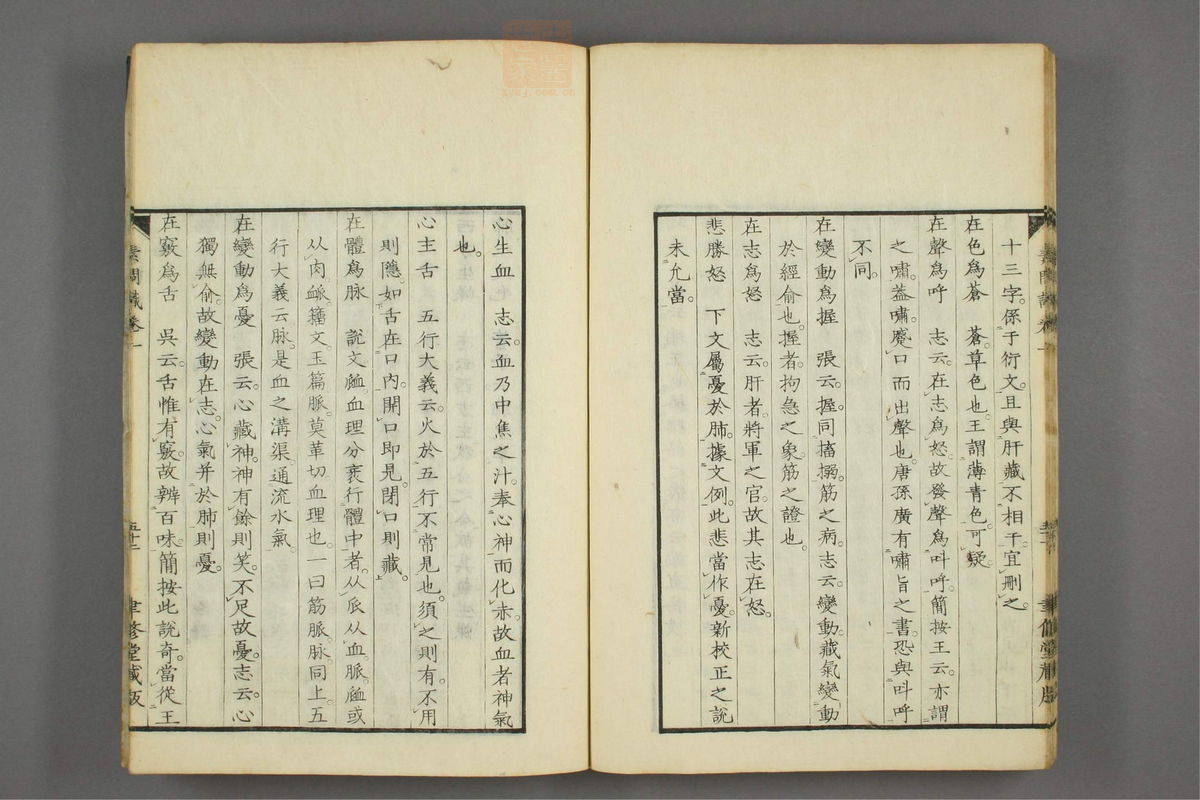 十三字。係于衍文。且與肝藏不相干。宜刪之。
在色爲蒼　蒼。草色也。王謂薄青色。可疑。
在聲爲呼　志云。在志爲怒。故發聲爲叫呼。簡按王云。亦謂
之嘯。蓋嘯。蹙口而出聲也。唐孫廣有嘯旨之書。恐與叫呼
不同。
在變動爲握　張云。握同搐搦。筋之病。志云。變動。藏氣變動
於經俞也。握者。拘急之象。筋之證也。
在志爲怒　志云。肝者。將軍之官。故其志在怒。
悲勝怒　下文屬憂於肺。據文例。此悲當作憂。新校正之說
未允當。
心生血　志云。血乃中焦之汁。奉心神而化赤。故血者神氣
也。
心主舌　五行大義云。火於五行不常見也。須之則有。不用
則隱。如舌在口內。開口即見。閉口則藏。
在體爲脉　說文。衇。血理分衺行體中者。从𠂢从血。脈。衇或
从肉。𧖴。籒文。玉篇。脈。莫革切。血理也。一曰筋脈。脉同上。五
行大義云。脉。是血之溝渠。通流水氣。
在變動爲憂　張云。心藏神。神有餘則笑。不足故憂。志云。心
獨無俞。故變動在志。心氣并於肺則憂。
在竅爲舌　吳云。舌惟有竅。故辨百味。簡按此說奇。當從王
素問識卷一
聿修堂藏版